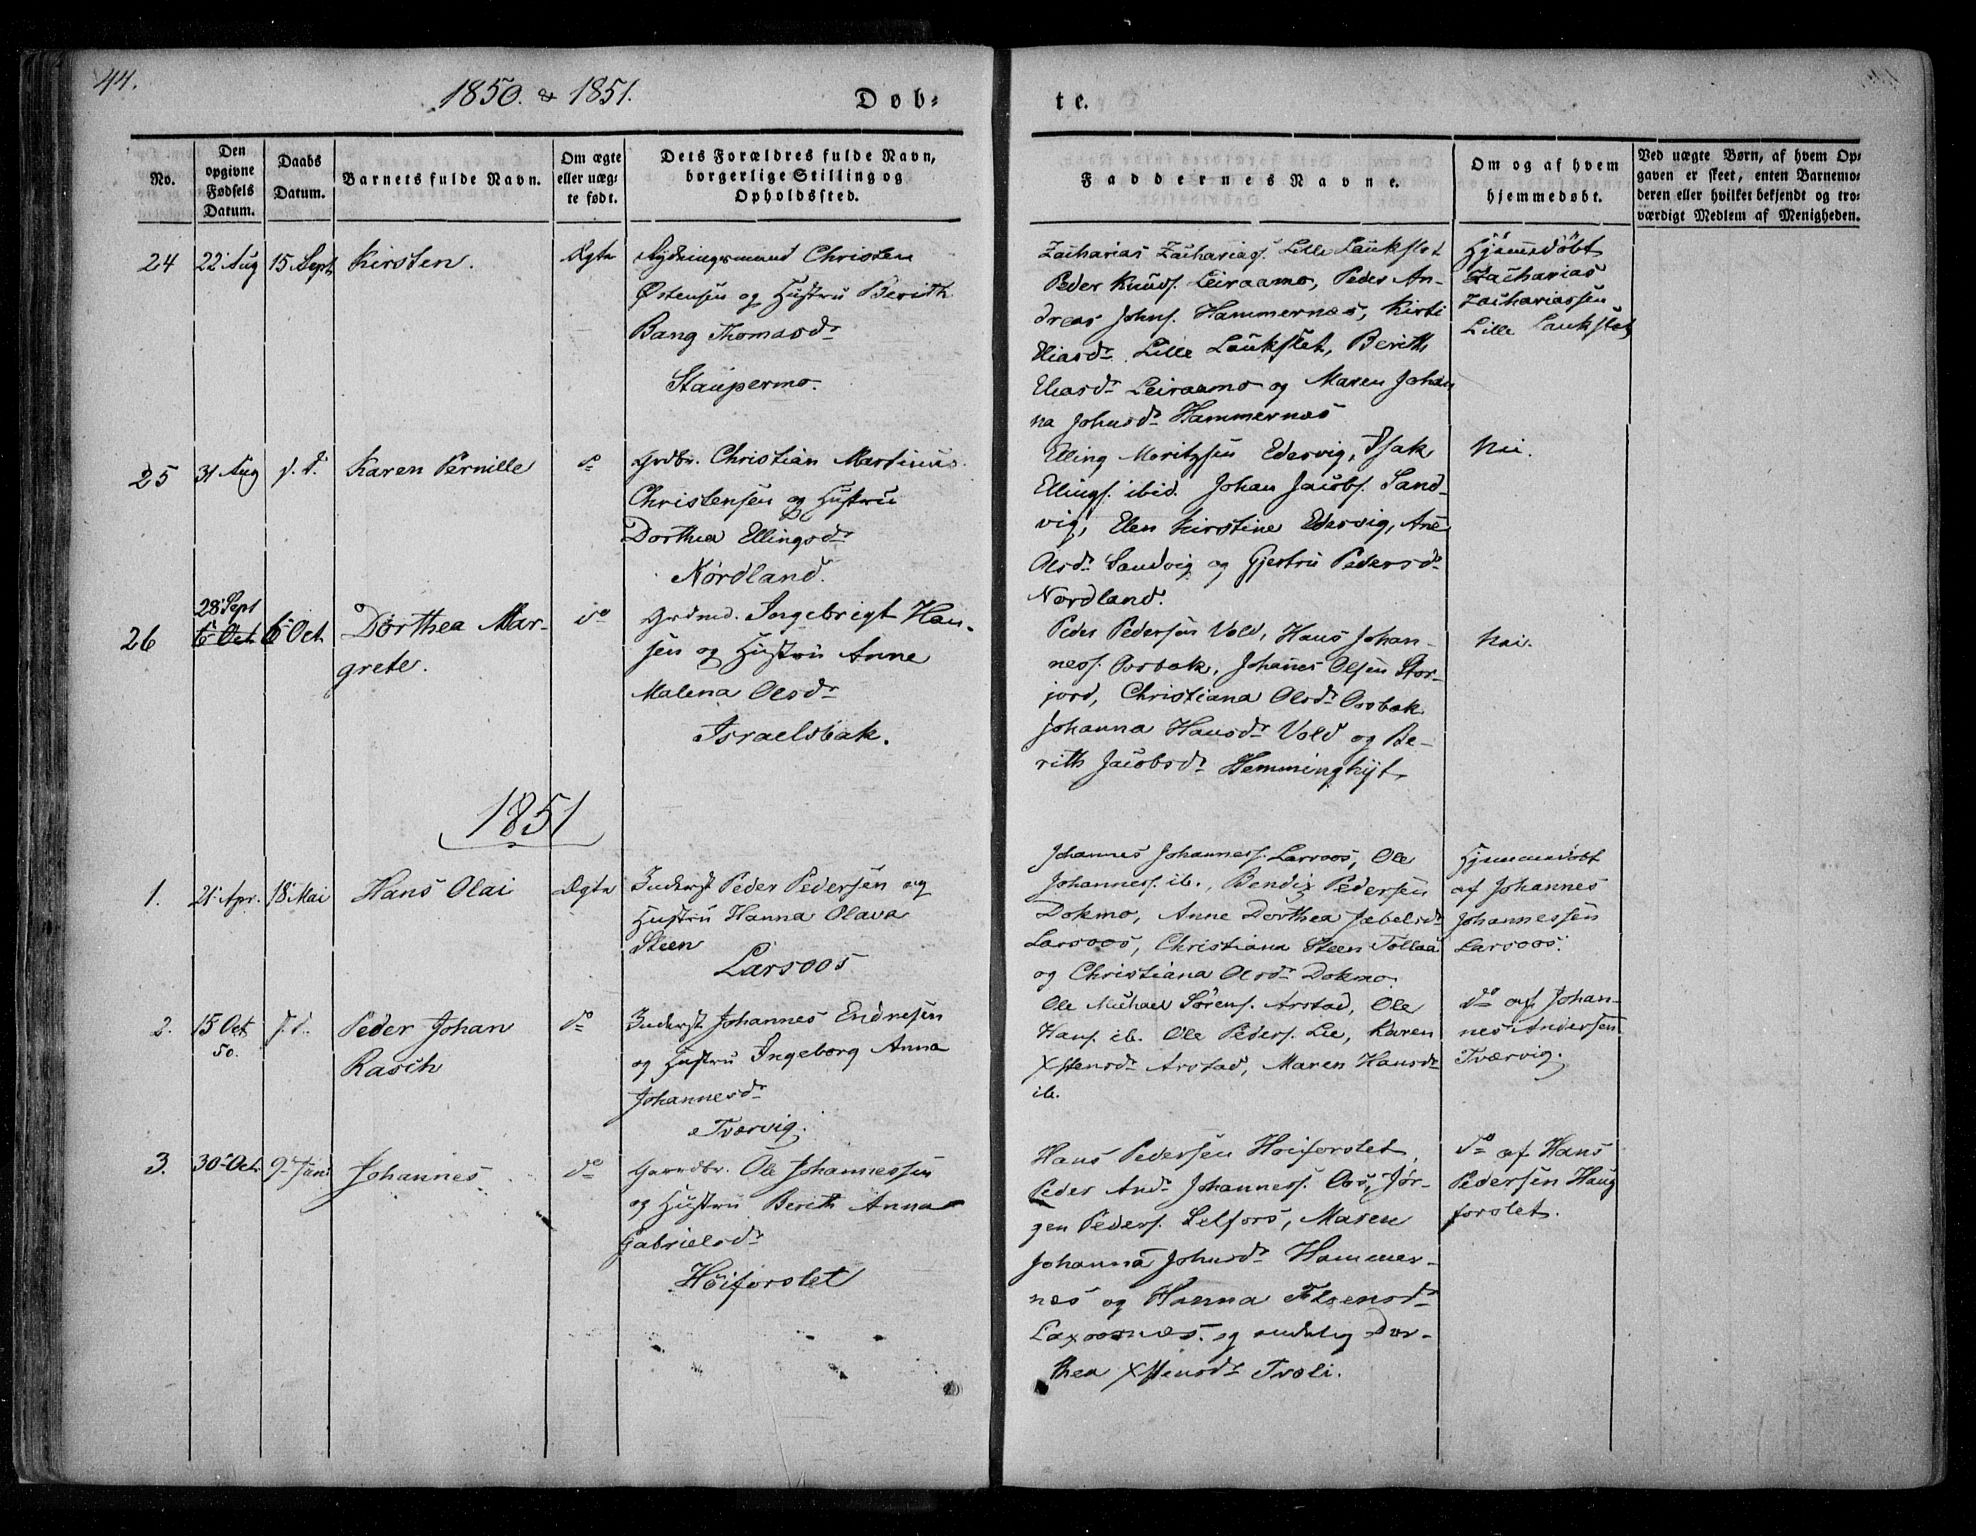 44.
1850. & 1851.
Døb-
te.
No.
Den
opgivne
Fødsels
Datum.
Daabs
Datum.
Barnets fulde Navn.
Om ægte
eller uæg-
te født.
Dets Forældres fulde Navn,
borgerlige Stilling og
Opholdssted.
Faddernes Navne.
Om og af hvem
hjemmedøbt.
Ved uægte Børn, af hvem Op-
gaven er skeet, enten Barnemo-
deren eller hvilket bekjendt og tro-
værdigt Medlem af Menigheden.
24
22 Aug
15 Sept
Kirsten.
Ægte
Rydningsmand Christen
Østensen og Hustru Berith
Bang Thomasdr
Staupermo.
Zacharias Zachariass. Lille Laukslet
Peder Knuds. Leiraamo, Peder An-
dreas Johns. Hammernæs, Kirsti
Eliasdr. Lille Laukslet, Berith
Eliasdr Leiraamo og Maren Johan
na Johnsdr Hammernæs
Hjemmedøbt
Zacharias
Zachariassen
Lille Laukslet
25
31 Aug
s. d.
Karen Pernille
do
Grdbr. Christian Martinus
Christensen og Hustru
Dorthea Ellingsdr
Nordland.
Elling Moritzsen Edesvig, Isak
Ellings. ibid. Johan Jacobs. Sand-
vig, Elen Kirstine Edesvig, Ane
Olsdr Sandvig og Gjertru Pedersdr
Nordland.
Nei.
26
28 Sept
6 Oct
6 Oct
Dorthea Mar-
grete.
do
Grdmd. Ingebrigt Han-
sen og Hustru Anne
Malena Olsdr
Israelsbak.
Peder Pedersen Vold, Hans Johan-
ness. Oosbak, Johanes Olsen Stor-
jord, Christiana Olsdr Oosbak
Johanna Hansdr Vold og Be-
rith Jacobsdr Hemminghyt.
Nei.
1851
1.
21 Apr.
18 Mai
Hans Olai
Ægte
Inderst Peder Pedersen og
Hustru Hanna Olava
Steen
Larsoos
Johannes Johanness. Larsoos, Ole
Johanness. ib., Bendix Pedersen
Dokmo, Anne Dorthea Jæbelsdr
Larsoos, Christiana Steen Tollaa
og Christiana Olsdr Dokmo.
Hjemmedøbt
af Johannes
Johannessen
Larsoos.
2.
15 Oct
50.
s. d.
Peder Johan
Rasch
do
Inderst Johannes Endresen
og Hustru Ingeborg Anna
Johannesdr
Tværvig.
Ole Michael Sørens. Arstad, Ole
Hans. ib. Ole Peders. Lie, Karen
Xstensdr Arstad, Maren Hansdr
ib.
do af Johan-
nes Andersen
Tværvig.
3.
30 Oct.
9 Juni
Johannes
do
Gaardbr. Ole Johannessen
og Hustru Berith Anna
Gabrielsdr
Höiforslet
Hans Pedersen Höiforslet,
Peder Andr. Johanness. Oos, Jør-
gen Peders. Selfors, Maren
Johanna Johnsdr Hammer-
næs og Hanna Ibensdr
Laxoosnæs. og endelig Dor-
thea Xstensdr Tvoli.
do af Hans
Pedersen Haug
forslet.